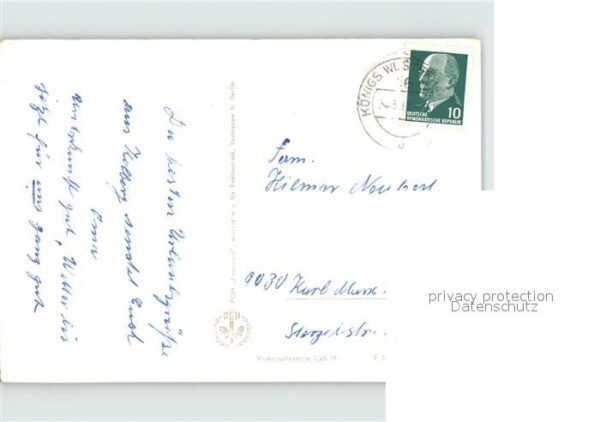 Die besten Urlaubsgrüße
aus Kolberg sendet Euch
Oma
Unterkunft gut, Wetter bis
jetzt für uns ganz gut
KÖNIGS WUS
10
DEUTSCHE
DEMOKRATISCHE REPUBLIK
Fam.
Hilmar Neubert
9030 Karl Marx
privacy protection
Datenschutz
Verbraucherpreis